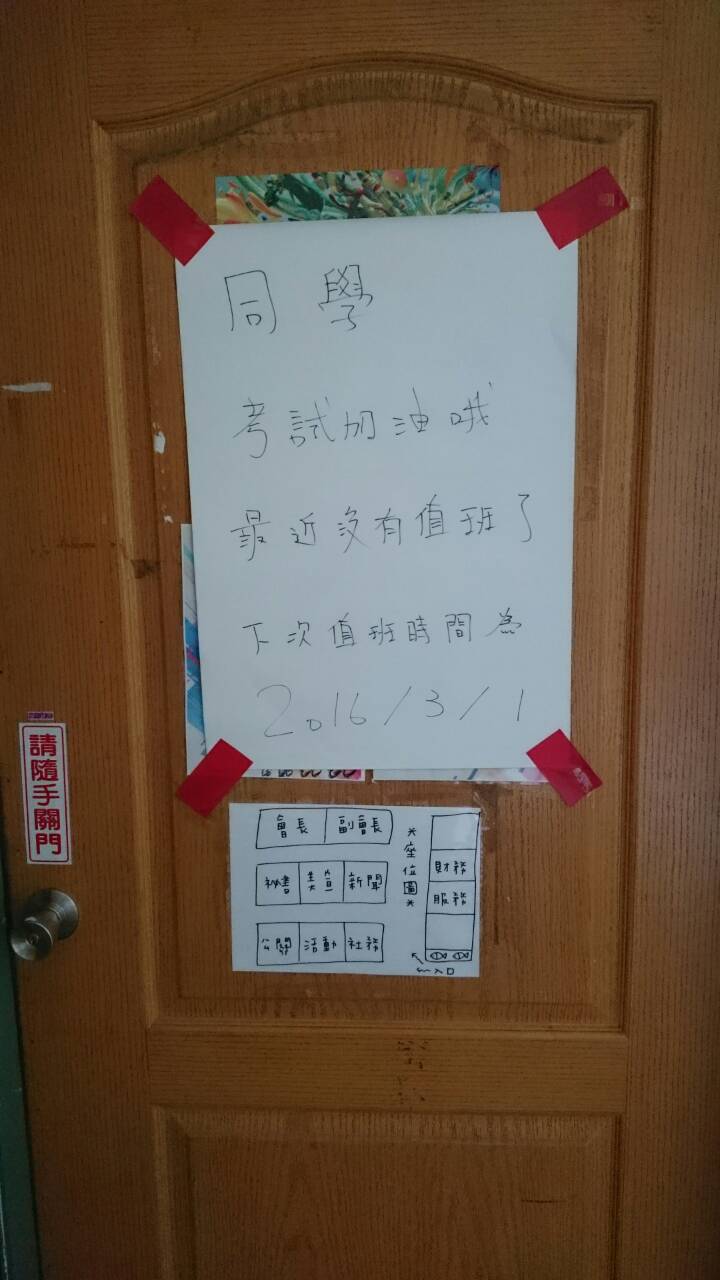 同學
考試加油哦
最近沒有值班了
下次值班時間為
2016/3/1
請隨手關門
會長 副會長
秘書 美宣 新聞
公關 活動 社務
*座位圖*
財務
服務
入口